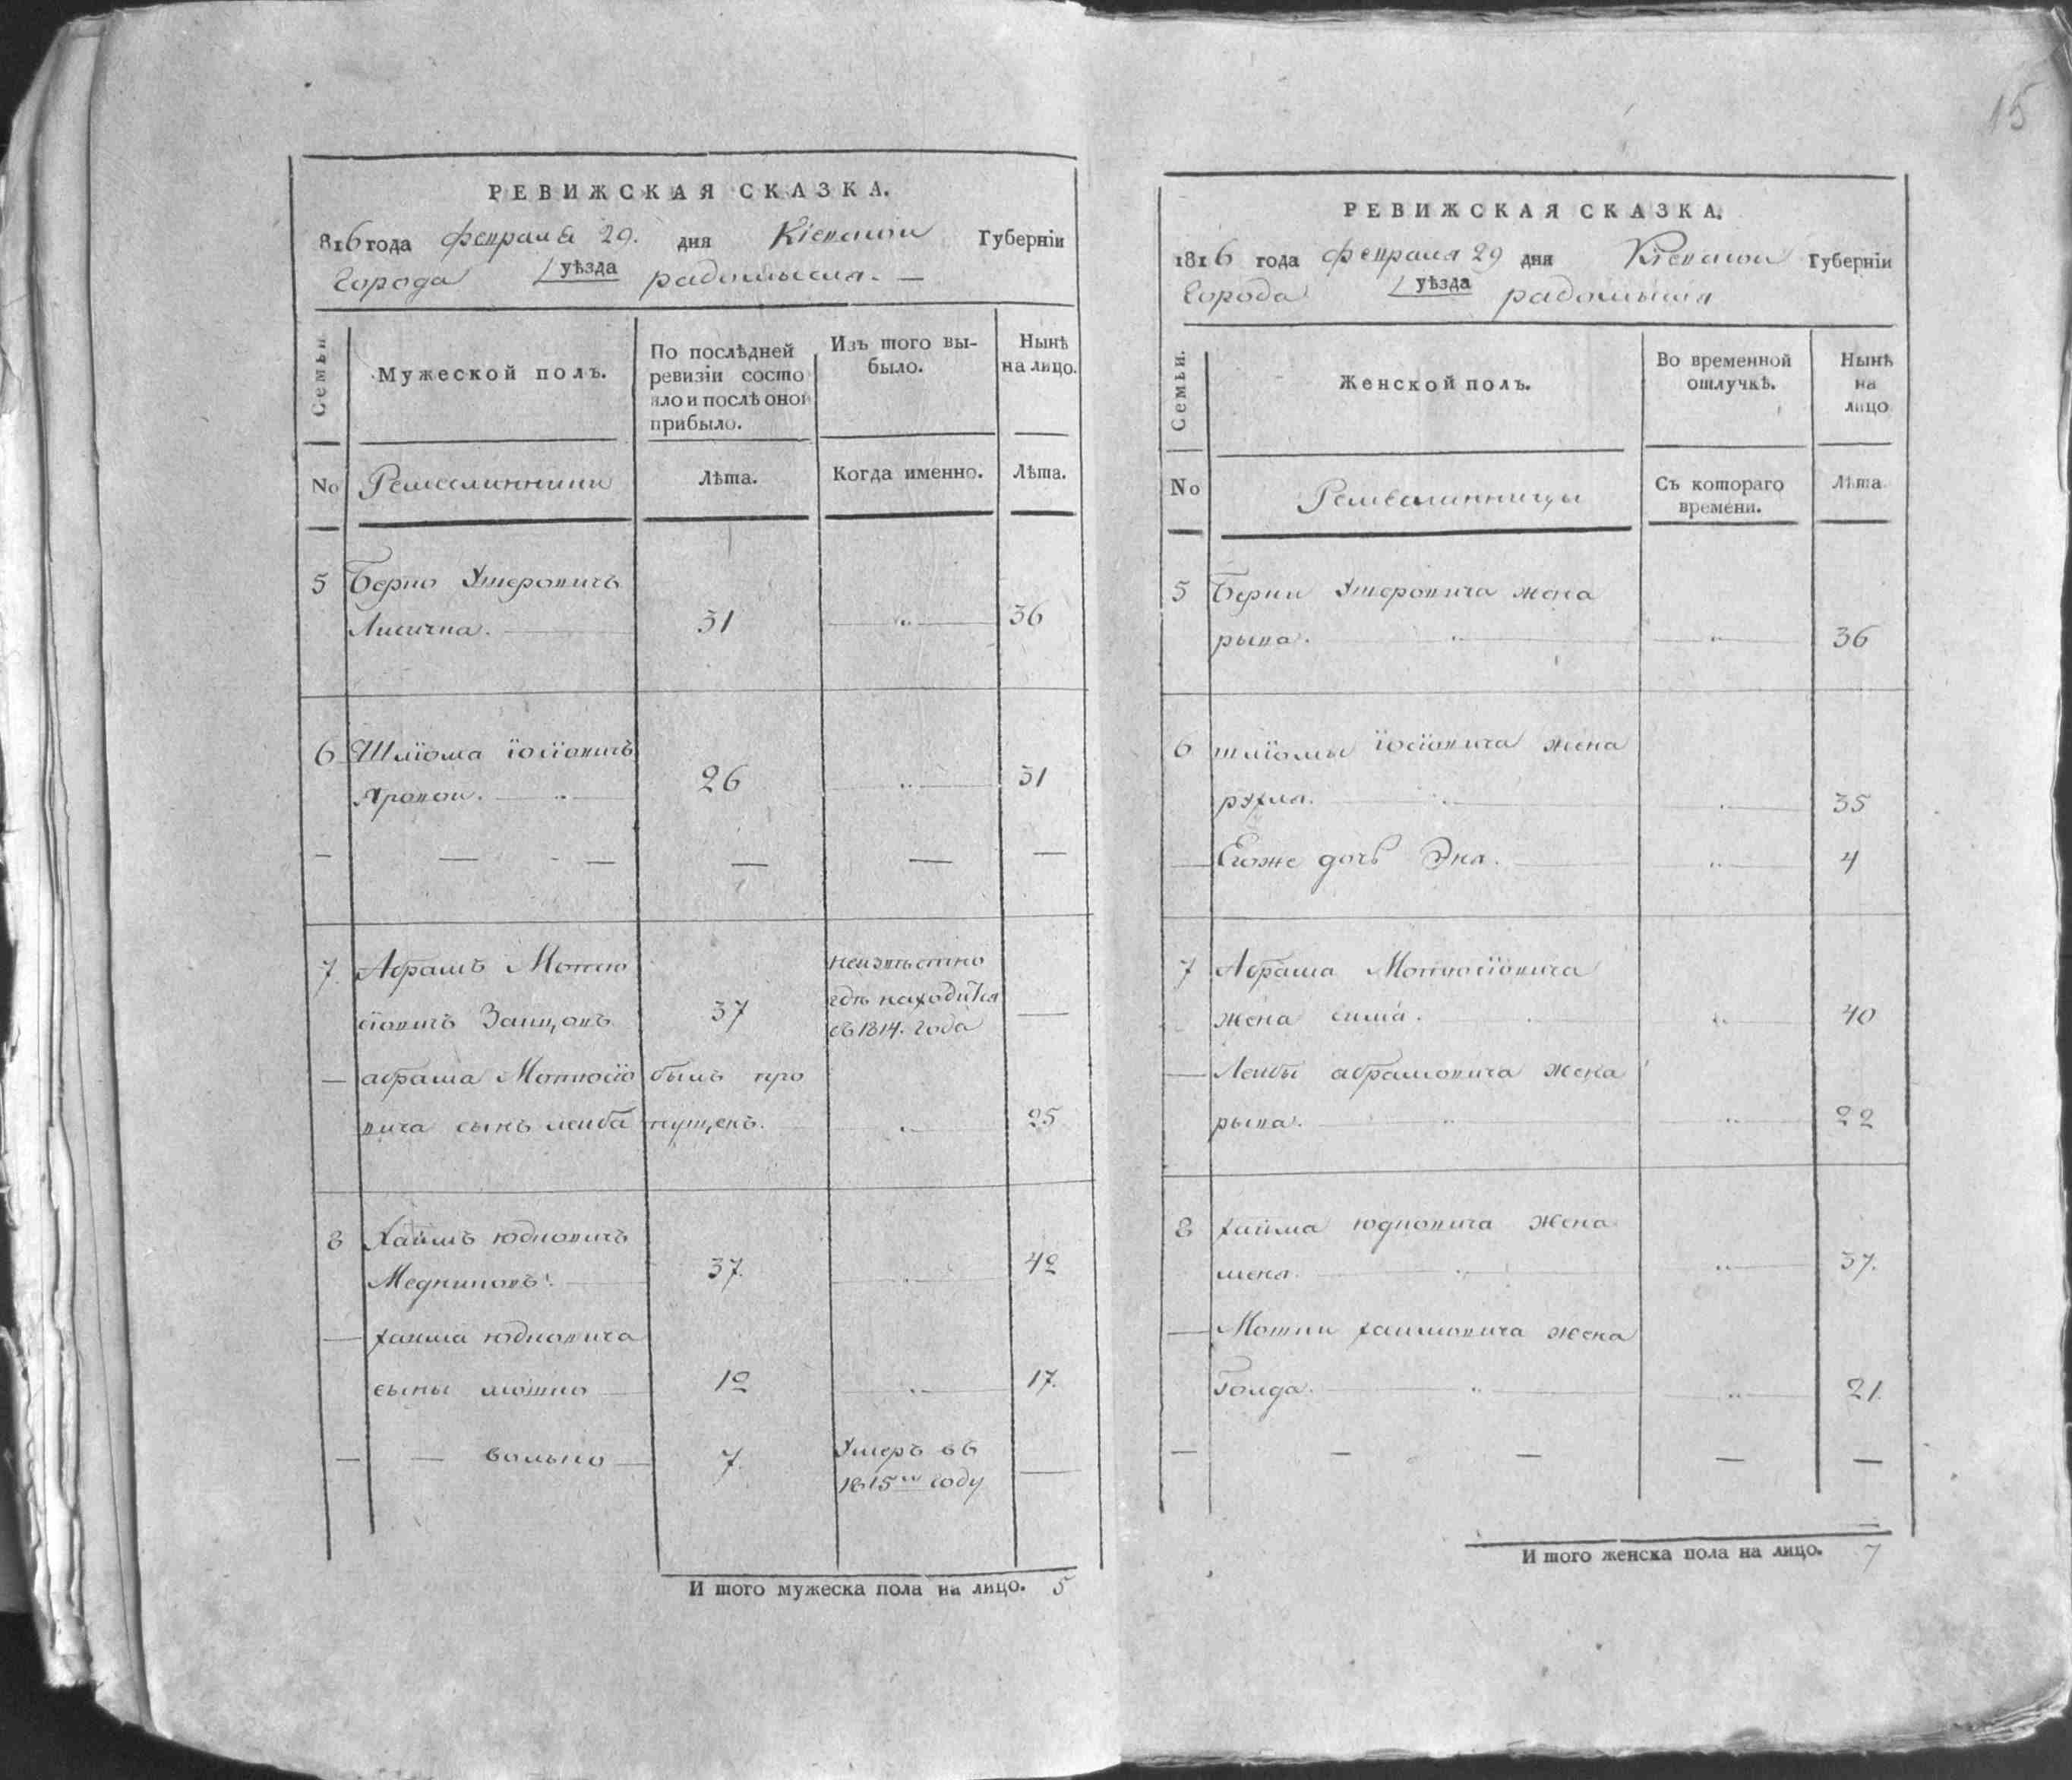 15
РЕВИЖСКАЯ СКАЗКА.
816 года февраля 29. дня Кіевской Губерніи
города уѣзда радомысля. —
Семьи.
Мужеской полъ.
По послѣдней ревизіи состо
яло и послѣ оной
прибыло.
Изъ того вы-
было.
Нынѣ
на лицо.
No Ремеслинники Лѣта. Когда именно. Лѣта.
5 Берко Умеровичъ
31 36
6 Шліома іосіовичъ
26 31
7. Абрамъ Мотио неизвѣстно
сіовичъ Заицовъ 37 гдѣ находится
съ 1814. года
— абрама Мотиосіо былъ про
вича сынъ леиба пущенъ. 25
8 Хаимъ юдковичъ
Медниковъ. 37. 42
— хаима юдковича
сыны мошко 12 17.
— — волько 7. Умеръ въ
1815м году
И того мужеска пола на лицо. 5
РЕВИЖСКАЯ СКАЗКА.
1816 года февраля 29 дня Кіевской Губерніи
города уѣзда радомысля
Семьи.
Женской полъ.
Во временной
отлучкѣ.
Нынѣ
на
лицо
No Ремеслинницы Съ котораго
времени. Лѣта
5 Берки Умеровича жена
рыва. 36
6 шліомы іосіовича жена
рухля. 35
— Егоже дочь Эня. 4
7 Абрама Мотиосіовича
жена сима. 40
— Леибы абрамовича жена
рыва. 22
8 хаима юдковича жена
меня. 37.
— Мошки хаимовича жена
Голда. 21.
И того женска пола на лицо. 7